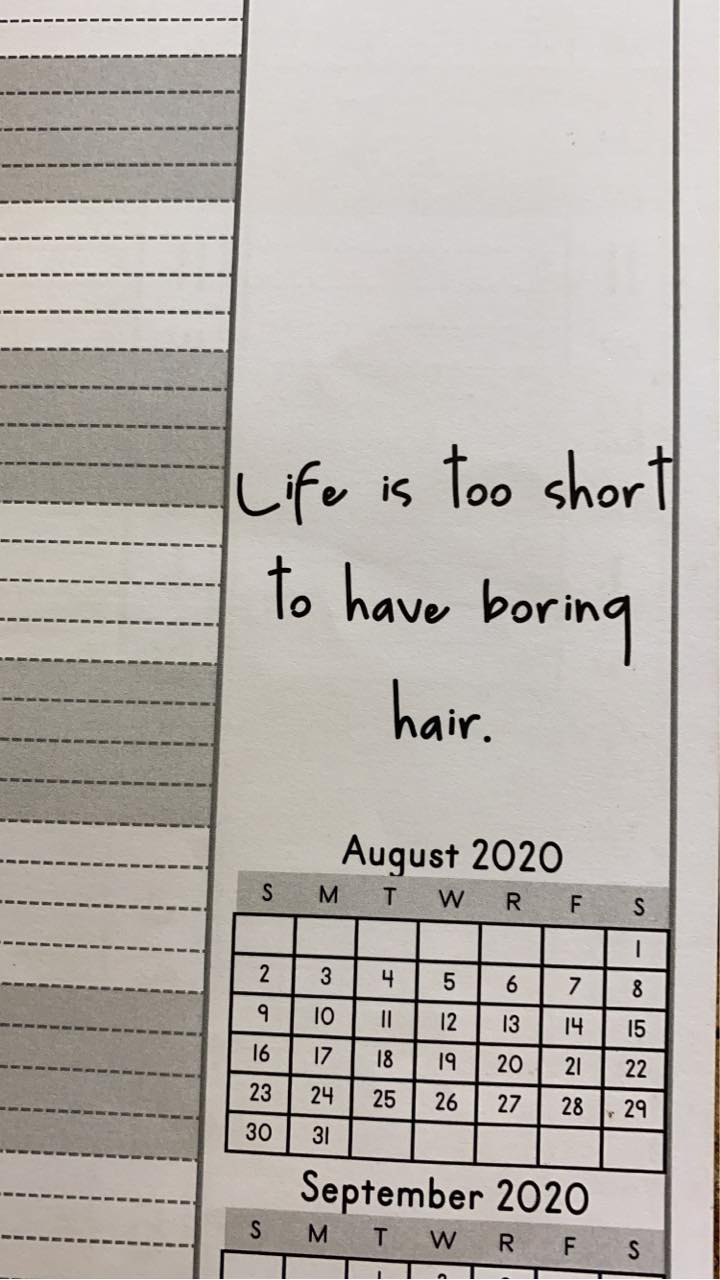 Life is too short
to have boring
hair.
August 2020
S M T W R F S
1
2 3 4 5 6 7 8
9 10 11 12 13 14 15
16 17 18 19 20 21 22
23 24 25 26 27 28 29
30 31
September 2020
S M T W R F S